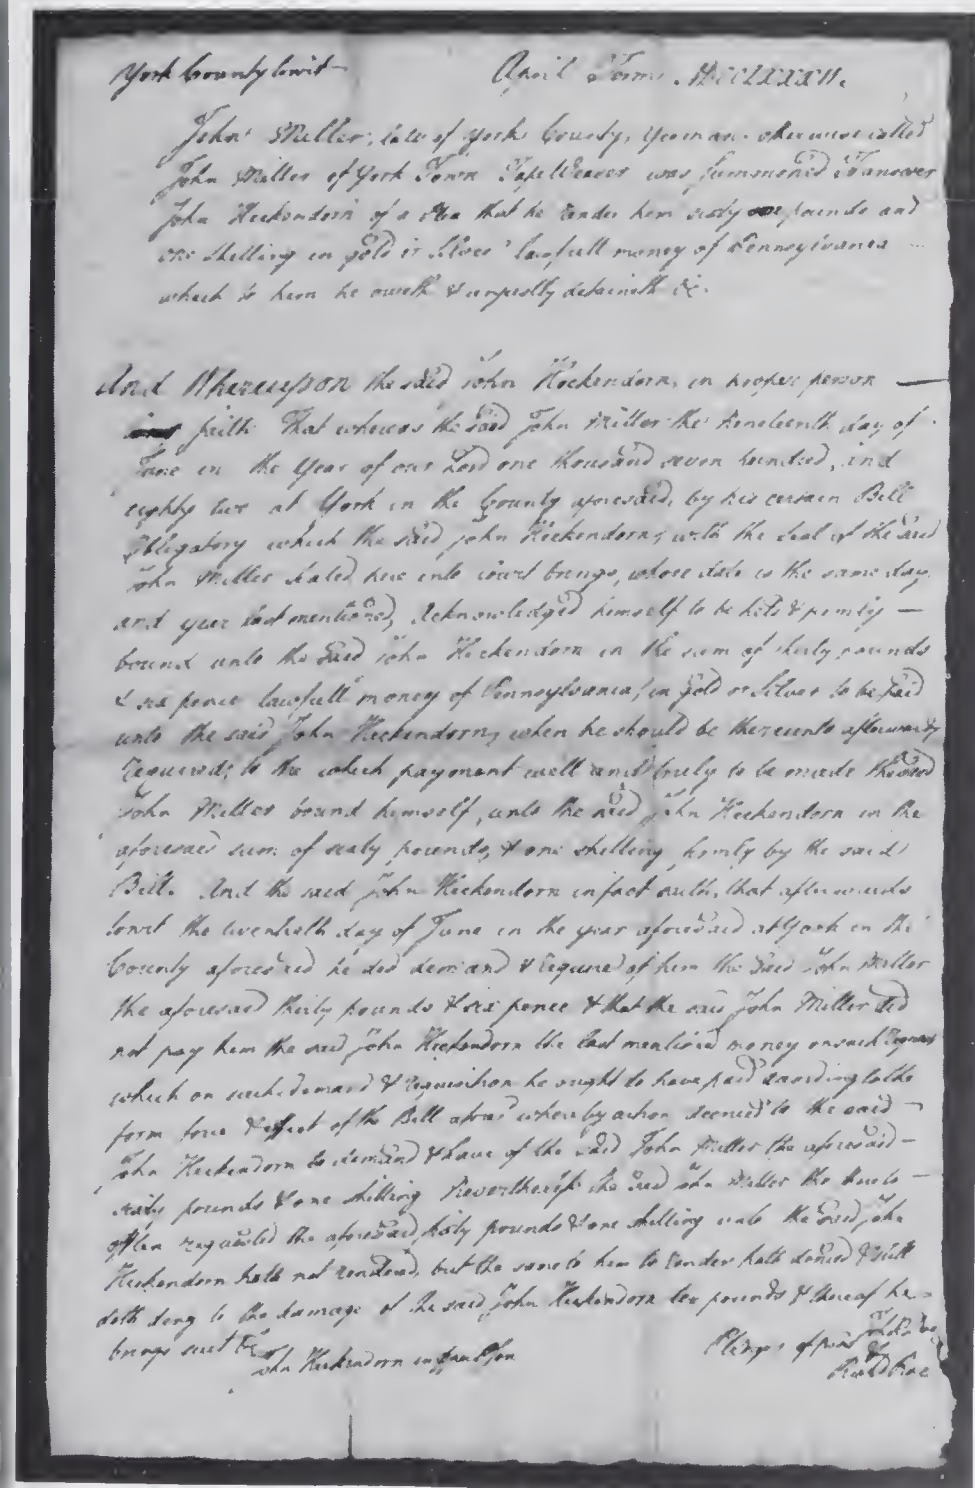 York County towit —
April Term MDCCLXXXII.
John Miller, late of York County, Yeoman otherwise called
John Miller of York Town Tape Weaver was Summoned To answer
John Heckendorn of a Plea that he render him sixty one pounds and
one shilling in Gold or Silver lawfull money of Pennsylvania
which to him he oweth & unjustly detaineth &c.
And Whereupon the said John Heckendorn, in proper person —
saith That whereas the said John Miller the Nineteenth day of
June in the Year of our Lord one thousand seven hundred, and
eighty two at York in the County aforesaid, by his certain Bill
Obligatory which the said John Heckendorn, with the Seal of the said
John Miller Sealed here into Court brings, whose date is the same day
and year last mentioned, Acknowledged himself to be held & firmly —
bound unto the Said John Heckendorn in the sum of thirty pounds
& six pence lawfull money of Pennsylvania, in Gold or Silver to be paid
unto the said John Heckendorn, when he should be thereunto afterwards
required; to the which payment well and truly to be made the said
John Miller bound himself, unto the said John Heckendorn in the
aforesaid sum of sixty pounds, & one shilling, firmly by the said
Bill. And the said John Heckendorn in fact saith, that afterwards
towit the twentieth day of June in the year aforesaid at York in the
County aforesaid he did demand & require of him the Said John Miller
the aforesaid thirty pounds & six pence & that the said John Miller did
not pay him the said John Heckendorn the last mentioned money on such Request
which on such demand & requisition he ought to have paid according to the
form force & effect of the Bill aforesd whereby action accrued to the said —
John Heckendorn to demand & have of the Said John Miller the aforesaid —
sixty pounds & one shilling Nevertheless the Said John Miller tho hereto —
often requested the aforesaid, sixty pounds & one shilling unto the Said, John
Heckendorn hath not rendered, but the same to him to render hath denied & still
doth deny to the damage of the said John Heckendorn ten pounds & thereof he
brings suit &c
John Heckendorn in
Pledges of pros John Doe
&
Richd Roe